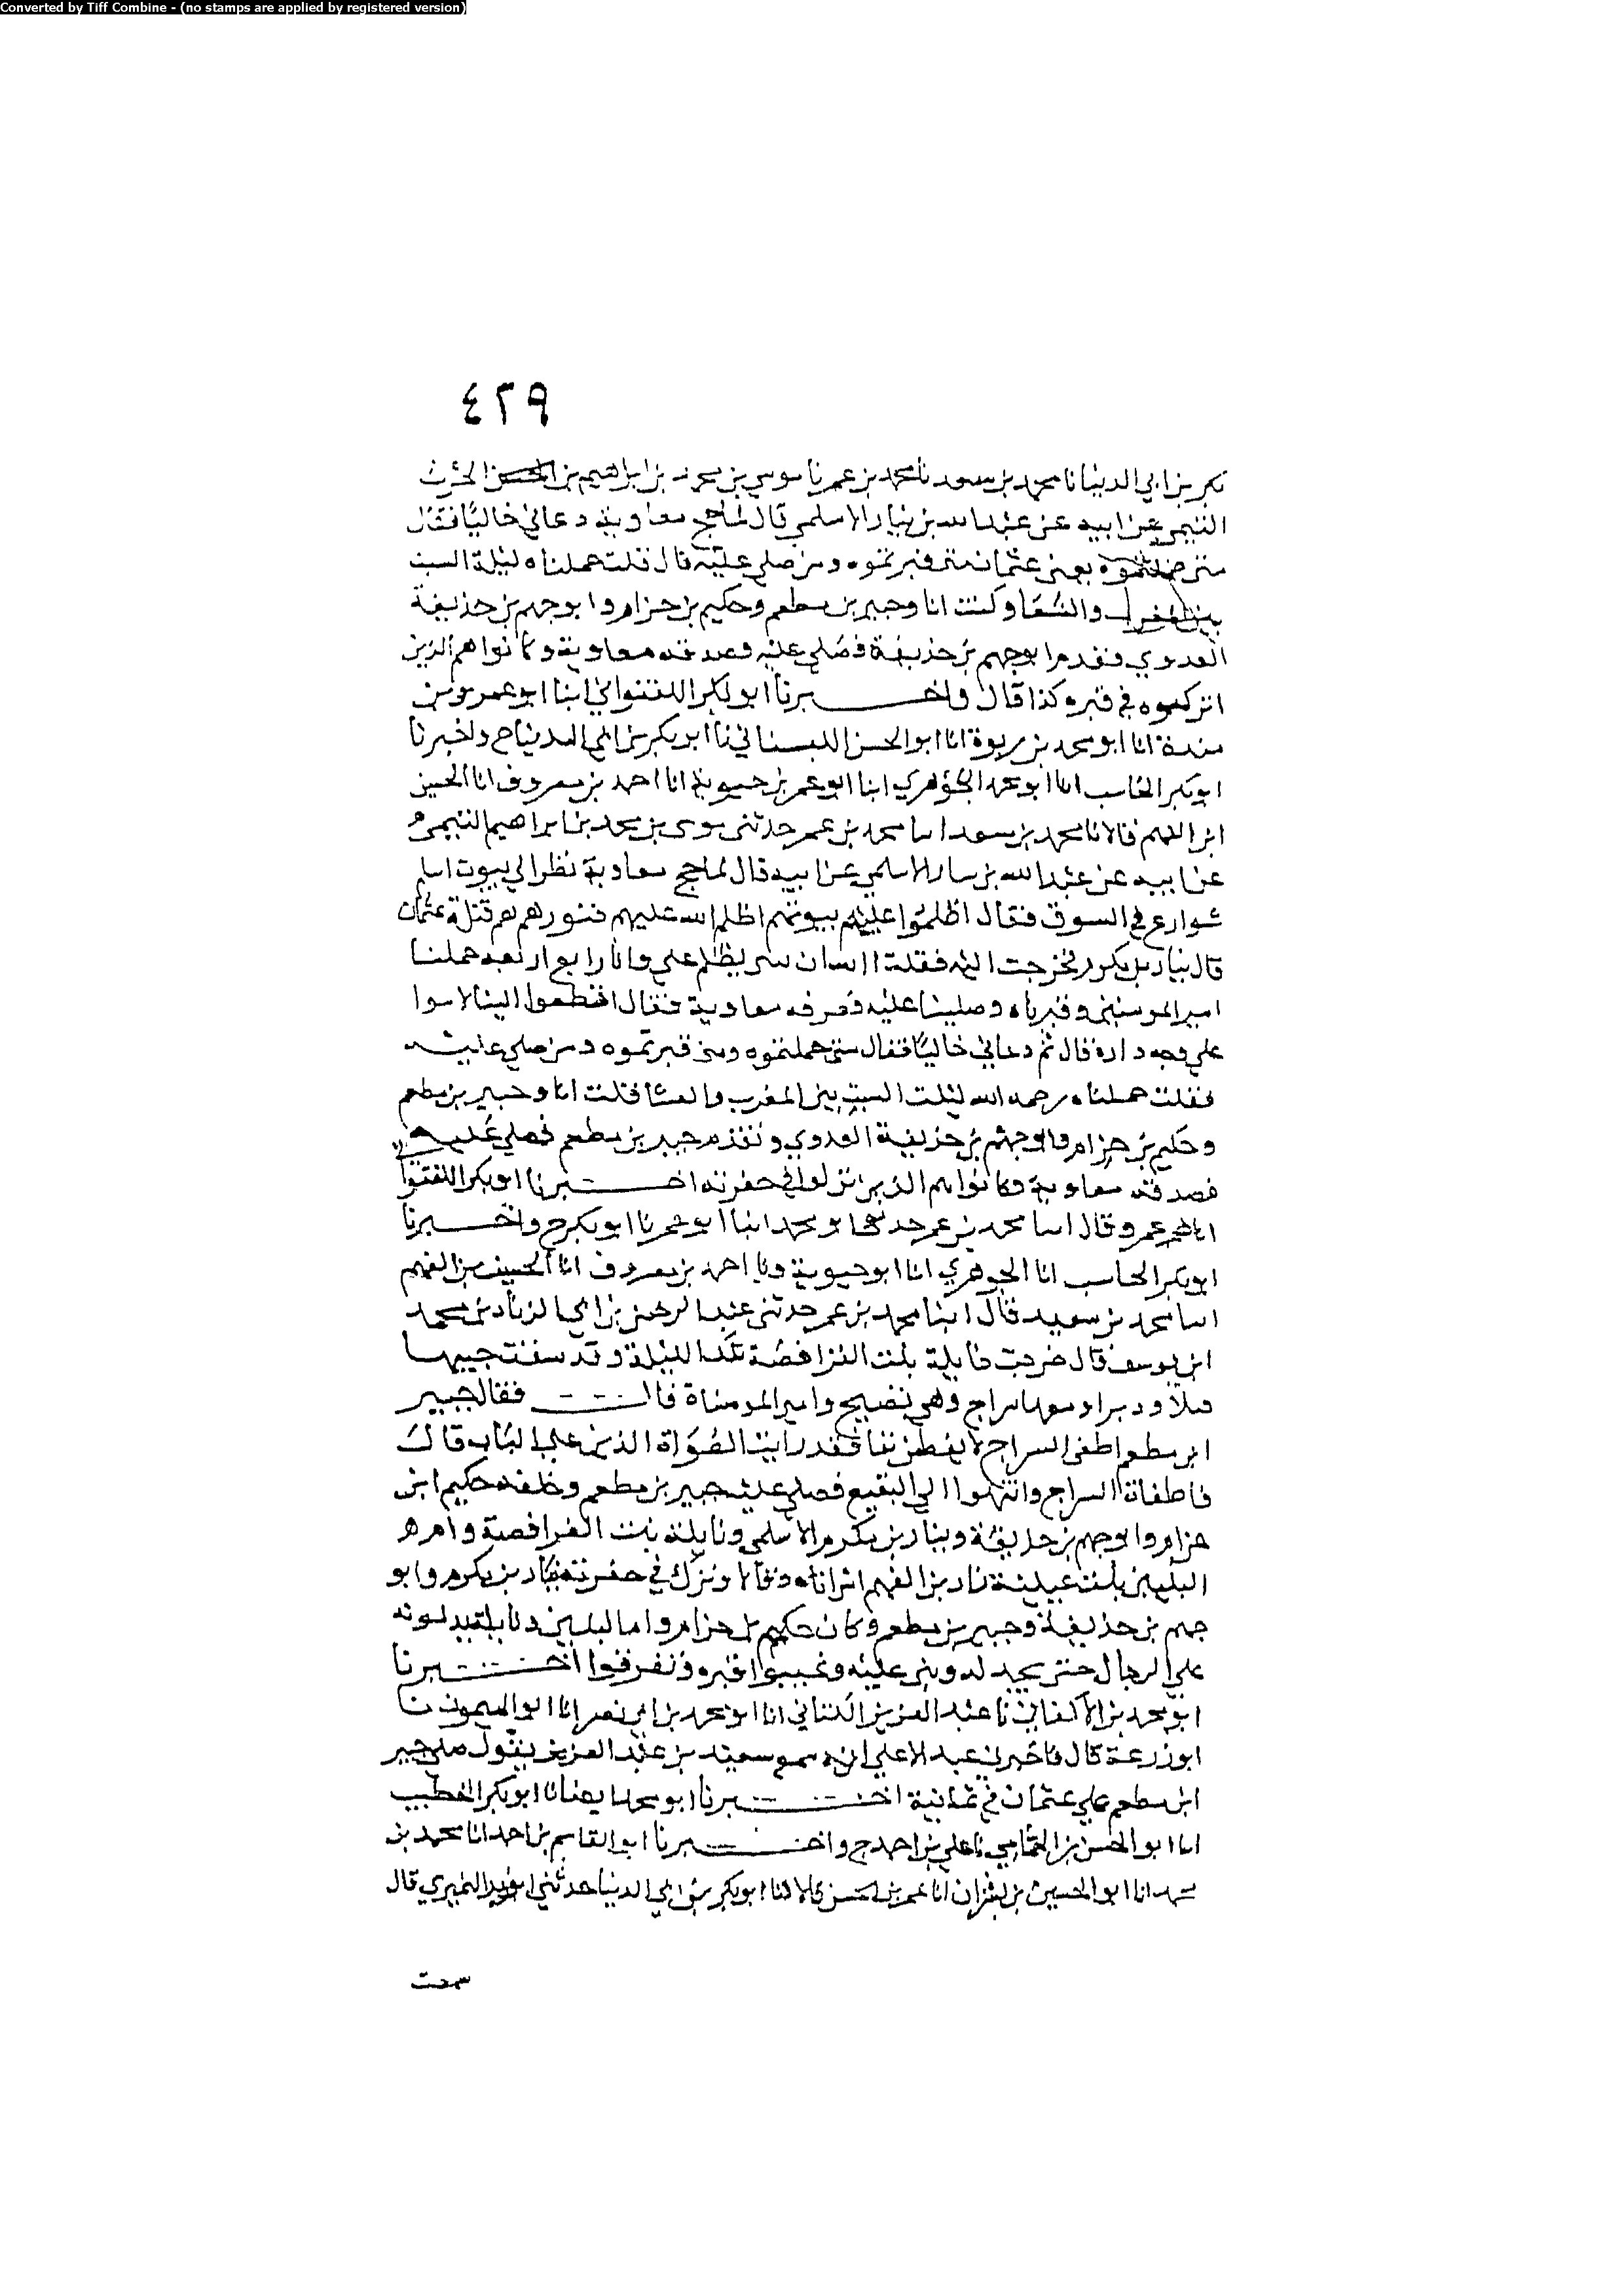 Converted by Tiff Combine - (no stamps are applied by registered version)
٤٢٩
بكر بن ابي الدنيا نا محمد بن سعد نا محمد بن عمر نا موسى بن محمد بن ابراهيم بن الحرث
التيمي عن ابيه عن عبد الله بن نيار الاسلمي قال لما حج معاوية دعاني خاليًا فقال
متى حملتموه يعني عثمان متى قبرتموه ومن صلى عليه قال قلت حملناه ليلة السبت
بين المغرب والعشا وكنت انا وجبير بن مطعم وحكيم بن حزام وابو جهم بن حذيفة
العدوي فتقدم ابو جهم بن حذيفة فصلى عليه وصدقه معاوية وكانوا هم الذين
انزلوه في قبره كذا قال واخبرنا ابو بكر اللفتواني ابنا ابو عمرو بن
مندة انا ابو محمد بن يوة انا ابو الحسن اللبناني نا ابو بكر بن ابي الدنيا ح واخبرنا
ابو بكر الحاسب انا ابو محمد الجوهري ابنا ابو عمر بن حيوية انا احمد بن معروف انا الحسين
ابن الفهم قالا نا محمد بن سعد انا محمد بن عمر حدثني موسى بن محمد بن ابراهيم التيمي
عن ابيه عن عبد الله بن نيار الاسلمي عن ابيه قال لما حج معاوية نظر الى بيوت اسلم
شوارع في السوق فقال اظلموا عليهم بيوتهم اظلم الله عليهم قبورهم هم قتلة عثمان
قال نيار بن مكرم فخرجت اليه فقلت ان يظلم علي وانا رابع اربعة حملنا
امير المومنين وقبرناه وصلينا عليه فعرفه معاوية فقال اقطعوا البنا لا
على وجه داره قال ثم دعاني خاليًا فقال متى حملتموه ومتى قبرتموه ومن صلى عليه
فقلت حملناه رحمه الله ليلت السبت بين المغرب والعشا فكنت انا وجبير بن مطعم
وحكيم بن حزام وابو جهم بن حذيفة العدوي وتقدم جبير بن مطعم فصلى عليه
فصدقه معاوية وكانوا هم الذين نزلوا في حفرته اخبرنا ابو بكر اللفتوا
انا عمرو وقال انا محمد بن عمر ابو محمد ابنا ابو عمر نا ابو بكر ح واخبرنا
ابو بكر الحاسب انا الجوهري انا ابو حيوية ونا احمد بن معروف انا الحسين بن الفهم
انا محمد بن سعيد قال ابنا محمد بن عمر حدثني عبد الرحمن بن ابي الزناد عن محمد
ابن يوسف قال خرجت نايلة بنت الفرافصة تلك الليلة وقد شقت جيبها
قبلا ودبرا ومعها سراج وهي تصيح وامير المومناة قال فقال جبير
ابن مطعم اطفى السراج لا يفطن بنا فقد رايت الغواة الذين على الباب قال
فاطفات السراج وانتهوا الى البقيع فصلى عليه جبير بن مطعم وخلفه حكيم ابن
حزام وابو جهم بن حذيفة ونيار بن مكرم الاسلمي ونايلة بنت الفرافصة وام
البنين بنت عيينة زاد بن الفهم امراتاه وقالا ونزل في حفرته نيار بن مكرم وابو
جهم بن حذيفة وجبير بن مطعم وكان حكيم بن حزام وام البنين ونايلة يدلونه
على الرجال حتى لحد له وبنى عليه وغيبوا قبره وتفرقوا اخبرنا
ابو محمد بن الاكفاني نا عبد العزيز الكتاني انا ابو محمد بن ابي نصر انا ابو الميمون نا
ابو زرعة قال فاخبرني عبد الاعلى انه سمع سعيد بن عبد العزيز يقول صلى جبير
ابن مطعم على عثمان في ثمانية اخبرنا ابو محمد ايضا انا ابو بكر الخطيب
انا ابو الحسن بن الحمامي نا علي بن احمد ح واخبرنا ابو القاسم بن احمد انا محمد بن
محمد انا ابو الحسين بن بشران انا عمر بن الحسن قالا نا ابو بكر بن ابي الدنيا حدثني ابو زيد النميري قال
سمعت